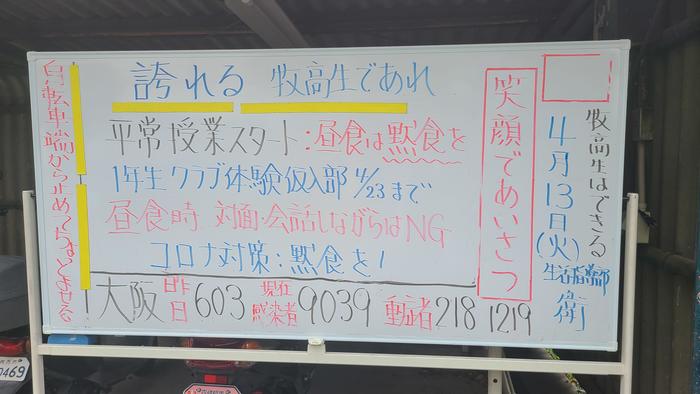 牧高生はできる
4月13日(火)
生活指導部
衛
笑顔であいさつ
誇れる 牧高生であれ
平常授業スタート:昼食は黙食を
1年生クラブ体験仮入部4/23まで
昼食時 対面・会話しながらはNG
コロナ対策:黙食を!
大阪 昨日 603 現在感染者 9039 重症者 218 1219
自転車端から止めて